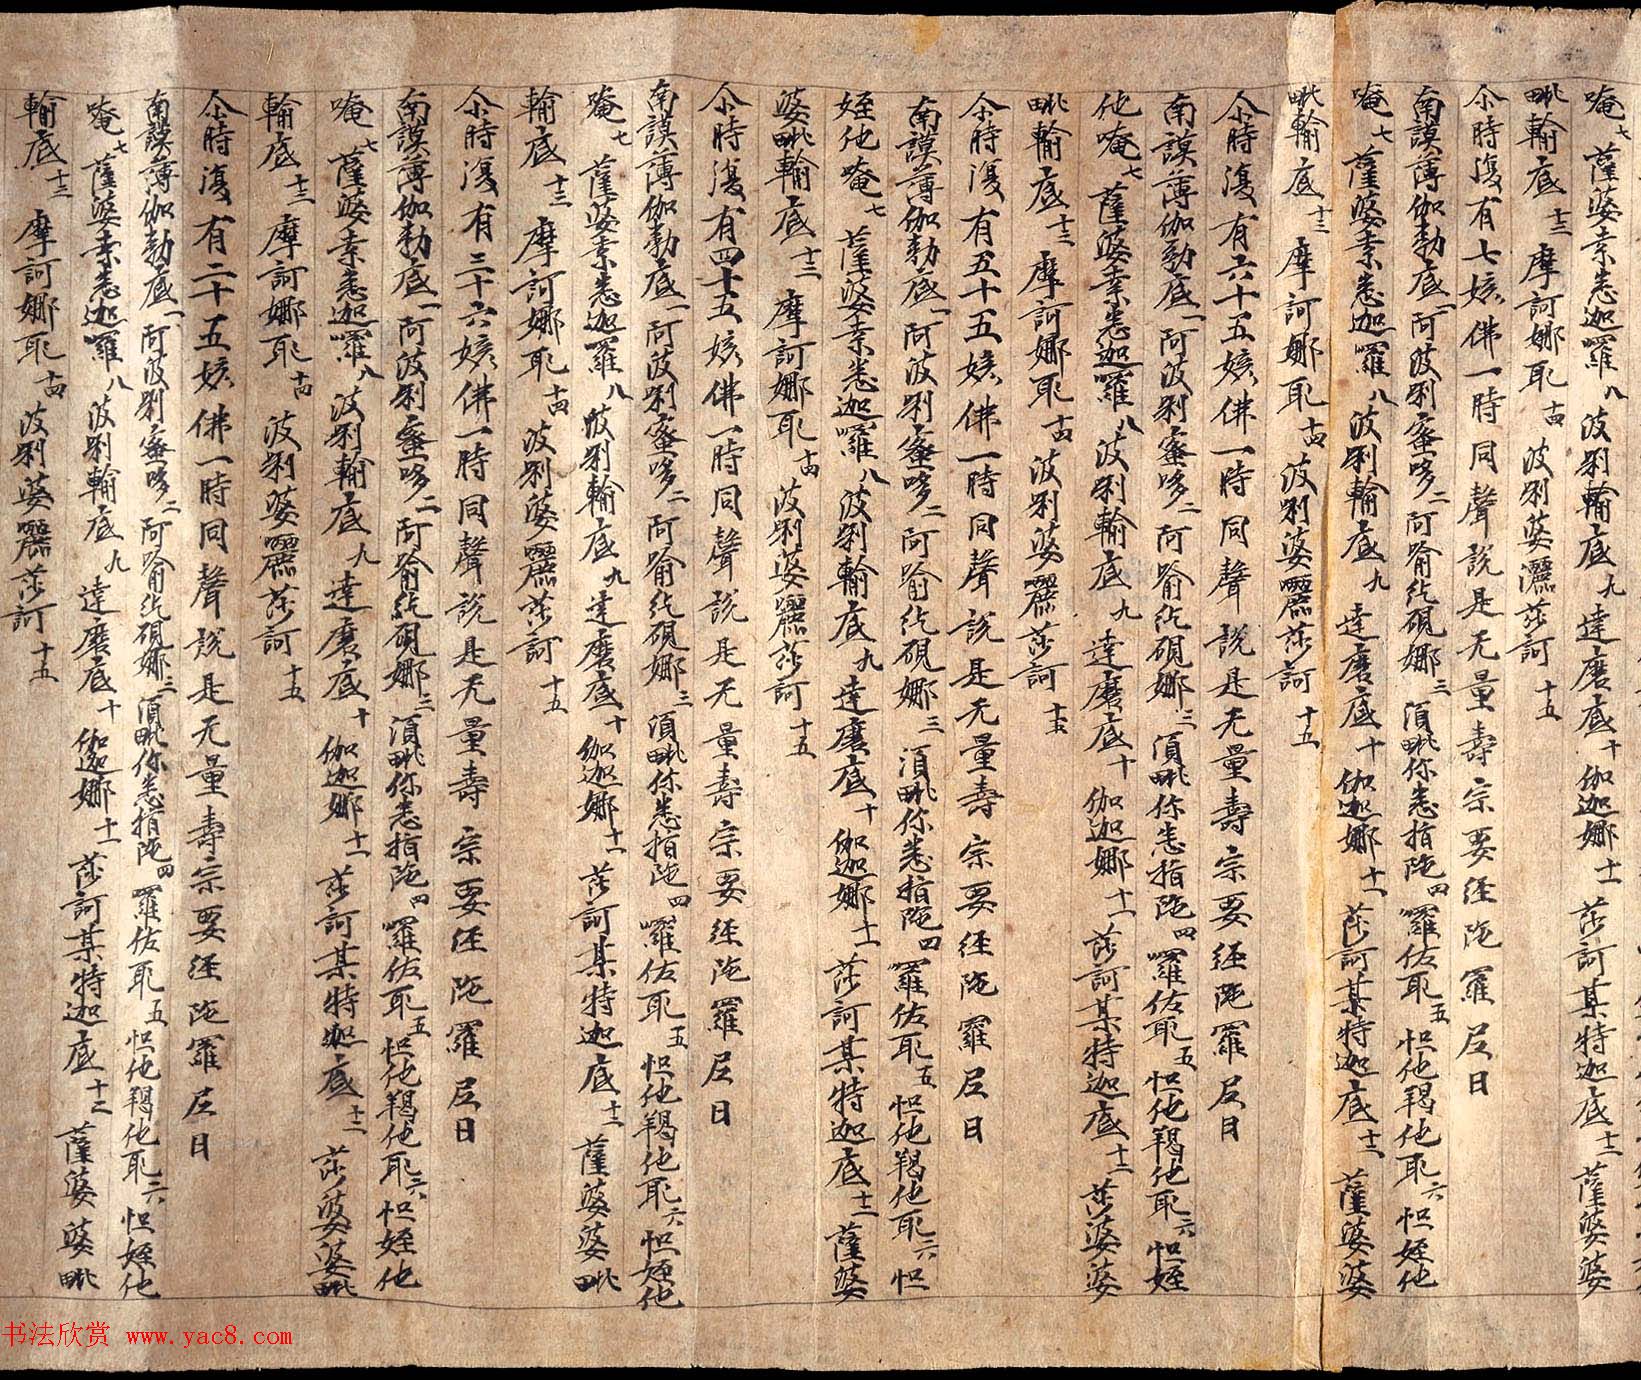 唵七 薩婆桒悉迦羅八 波唎輸底九 達磨底十 伽迦娜十一 莎訶某特迦底十二 薩婆婆
毗輸底十三 摩訶娜耶十四 波唎婆灑莎訶十五
尒時復有七姟佛一時同聲說是无量壽宗要經陁羅尼曰
南謨薄伽勃底一 阿波唎蜜哆二 阿喻紇硯娜三 須毗你悉指陁四 囉佐耶五 怛他羯他耶六 怛姪他
唵七 薩婆桒悉迦囉八 波唎輸底九 達磨底十 伽迦娜十一 莎訶某特迦底十二 薩婆婆
毗輸底十三 摩訶娜耶十四 波唎婆囇莎訶十五
尒時復有六十五姟佛一時同聲說是无量壽宗要經陁羅尼曰
南謨薄伽勃底一 阿波唎蜜哆二 阿喻紇硯娜三 須毗你悉指陁四 囉佐耶五 怛他羯他耶六 怛姪
他唵七 薩婆桒悉迦囉八 波唎輸底九 達磨底十 伽迦娜十一 莎訶某特迦底十二 莎婆婆
毗輸底十三 摩訶娜耶十四 波唎婆囇莎訶十五
尒時復有五十五姟佛一時同聲說是无量壽宗要經陁羅尼曰
南謨薄伽勃底一 阿波唎蜜哆二 阿喻紇硯娜三 須毗你悉指陁四 羅佐耶五 怛他羯他耶六 怛
姪他唵七 薩婆桒悉迦囉八 波唎輸底九 達磨底十 伽迦娜十一 莎訶某特迦底十二 薩婆
婆毗輸底十三 摩訶娜耶十四 波唎婆囇莎訶十五
尒時復有四十五姟佛一時同聲說是无量壽宗要經陁羅尼曰
南謨薄伽勃底一 阿波唎蜜哆二 阿喻紇硯娜三 須毗你悉指陁四 囉佐耶五 怛他羯他耶六 怛姪他
唵七 薩婆桒悉迦羅八 波唎輸底九 達磨底十 伽迦娜十一 莎訶某特迦底十二 薩婆婆毗
輸底十三 摩訶娜耶十四 波唎婆囇莎訶十五
尒時復有三十六姟佛一時同聲說是无量壽宗要經陁羅尼曰
南謨薄伽勃底一 阿波唎蜜哆二 阿喻紇硯娜三 須毗你悉指陁四 囉佐耶五 怛他羯他耶六 怛姪他
唵七 薩婆桒悉迦囉八 波唎輸底九 達磨底十 伽迦娜十一 莎訶某特迦底十二 莎婆婆毗
輸底十三 摩訶娜耶十四 波唎婆囇莎訶十五
尒時復有二十五姟佛一時同聲說是无量壽宗要經陁羅尼曰
南謨薄伽勃底一 阿波唎蜜哆二 阿喻紇硯娜三 須毗你悉指陁四 羅佐耶五 怛他羯他耶六 怛姪他
唵七 薩婆桒悉迦羅八 波唎輸底九 達磨底十 伽迦娜十一 莎訶某特迦底十二 薩婆婆毗
輸底十三 摩訶娜耶十四 波唎婆囇莎訶十五
书法欣赏 www.yac8.com